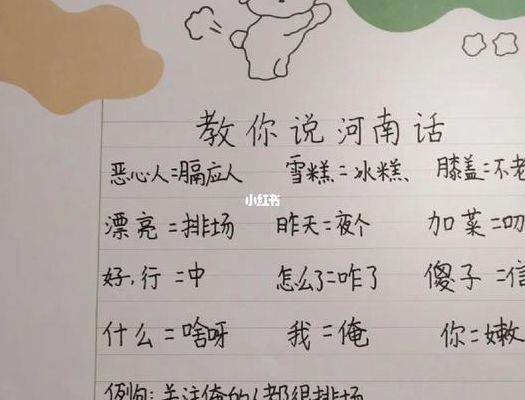 教你说河南话
恶心人=膈应人 雪糕=冰糕、 膝盖=不老
小红书
漂亮=排场 昨天=夜个 加菜=叨
好,行=中 怎么了=咋了 傻子=信
什么=啥呀 我=俺 你=嫩
例句:关注俺的人都很排场